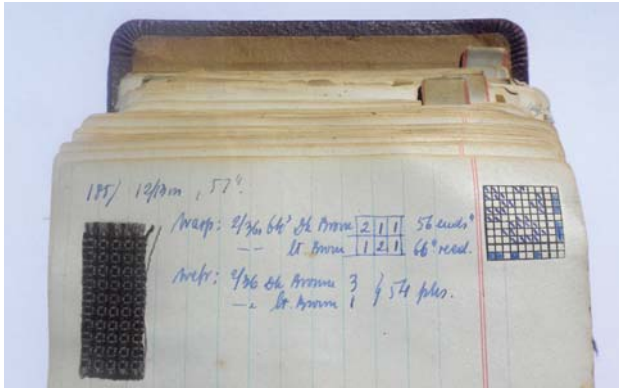 185/ 12/13 oz, 57"
Warp: 2/36s 64s Dk Brown 2 1 1 56 ends"
-"- lt Brown 1 2 1 66" reed.
Weft: 2/36 Dk Brown 3
-"- lt. Brown 1 } 54 pks.